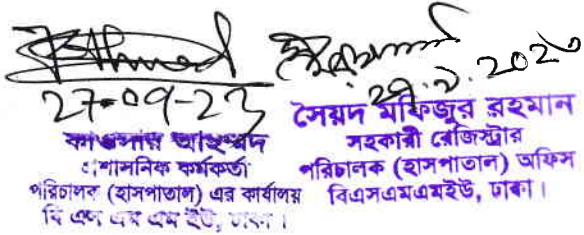 Ahmed
27-09-23
কাওসার আহম্মদ
প্রশাসনিক কর্মকর্তা
পরিচালক (হাসপাতাল) এর কার্যালয়
বি এস এম এম ইউ, ঢাকা।
27.9.2023
সৈয়দ মফিজুর রহমান
সহকারী রেজিস্ট্রার
পরিচালক (হাসপাতাল) অফিস
বিএসএমএমইউ, ঢাকা।